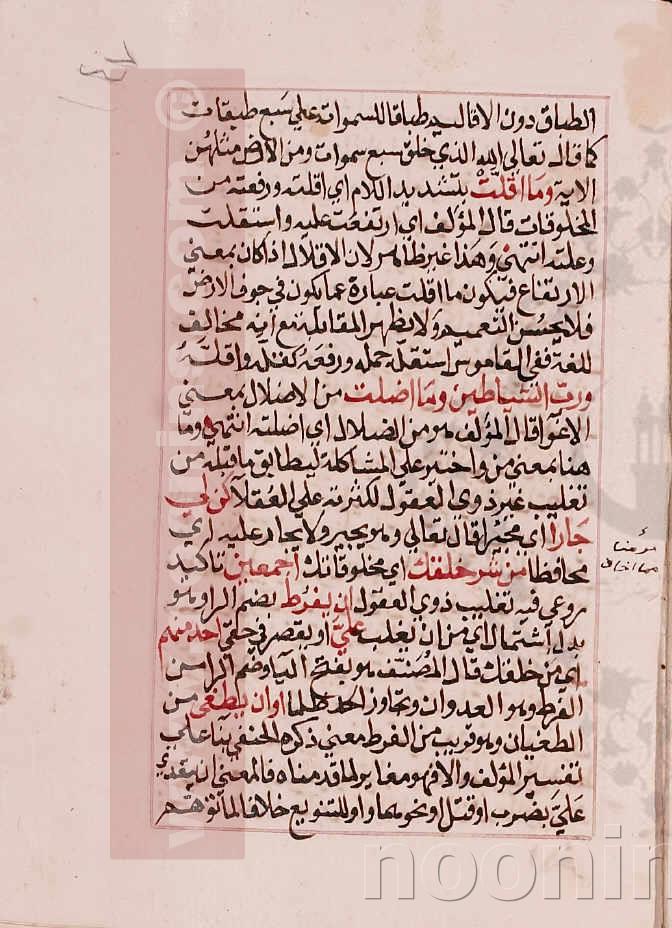 الطباق دون الاقاليم طباقا للسموات علي سبع طبقات
كما قال تعالي الله الذي خلق سبع سموات ومن الارض مثلهن
الاية وما اقلت بتشديد اللام اي اقلته ورفعته من
المخلوقات قال المؤلف اي ارتفعت عليه واستقلت
وعلته انتهي وهذا غير ظاهر لان الاقلال اذا كان بمعني
الارتفاع فيكون ما اقلت عبارة عما يكون في جوف الارض
فلا يحسن التعميم ولا يظهر المقابلة مع انه مخالف
للغة ففي القاموس استقله حمله ورفعه كقله واقله
ورب الشياطين وما اضلت من الاضلال بمعني
الاغوا قال المؤلف هو من الضلال اي اضلته انتهي وما
هنا بمعني من واختير علي المشاكلة ليطابق ما قبله من
تغليب غير ذوي العقول لكثرته علي العقلا كن لي
جارا اي مجيرا قال تعالي وهو يجير ولا يجار عليه اي
محافظا من شر خلقك اي مخلوقاتك اجمعين تاكيد
روعي فيه تغليب ذوي العقول ان يفرط بضم الرا وهو
بدل اشتمال اي من ان يغلب علي او يقصر في حقي احد منهم
اي من خلقك قال المصنف هو بفتح اليا وضم الرا من
الفرط وهو العدوان وتجاوز الحد ظلما او ان يطغي من
الطغيان وهو قريب من الفرط معني ذكره الحنفي بنا علي
تفسير المؤلف والافهو مغاير لما قدمناه فالمعني ان يتعدي
علي بضرب او قتل او نحوهما واو للتنويع خلافا لما توهم
noonim